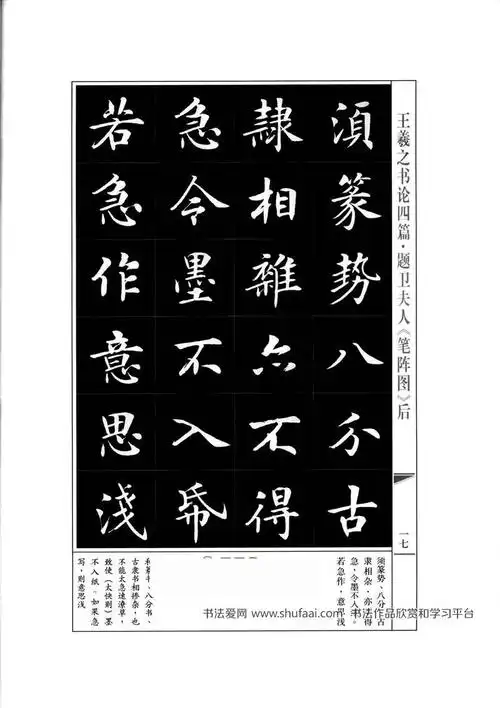 王羲之书论四篇·题卫夫人《笔阵图》后
一七
須篆勢八分古
隸相雜亦不得
急令墨不入帋
若急作意思淺
须篆势、八分、古
隶相杂,亦不得
急,令墨不入
若急作,意思浅
八分书、
古隶书相掺杂,也
不能太急速潦草,
致使(太快则)墨
不入纸。如果急
写,则意思浅
书法爱网 www.shufaai.com 书法作品欣赏和学习平台